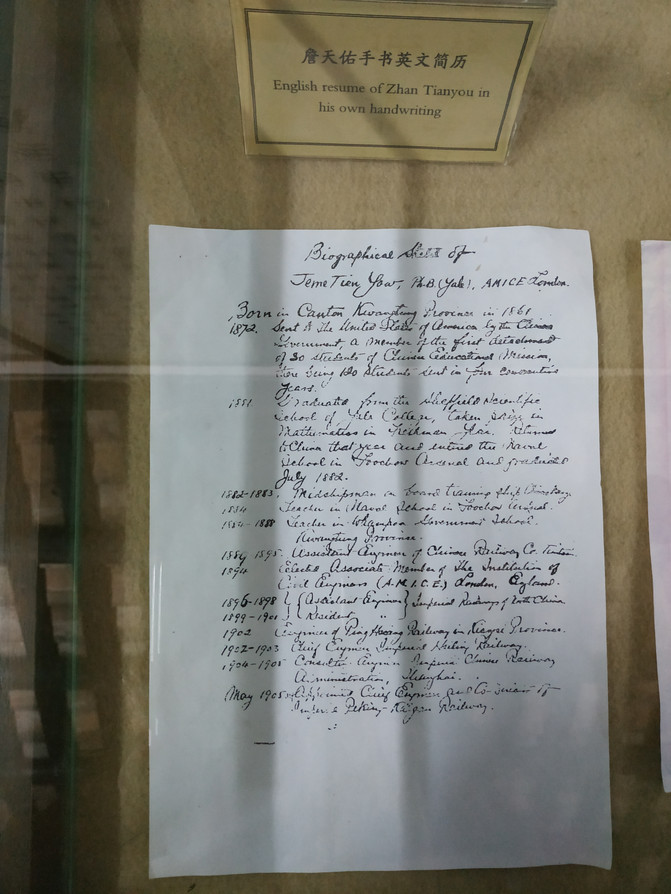 詹天佑手书英文简历
English resume of Zhan Tianyou in
his own handwriting
Biographical Sketch of
Jeme Tien Yow, Ph.B. (Yale), AMICE London.
Born in Canton Kwangtung Province in 1861
1872. Sent to the United States of America by the Chinese
Government, a member of the first detachment
of 30 students of Chinese Educational Mission,
there being 120 students sent in four consecutive
years.
1881 Graduated from the Sheffield Scientific
School of Yale College, taken prize in
Mathematics in Freshman year. Returned
to China that year and entered the Naval
School in Foochow Arsenal and graduated
July 1882.
1882-1883. Midshipman on board training ship
1884 Teacher in Naval School in Foochow Arsenal.
1884-1888 Teacher in Whampoa Government School.
Kwangtung Province.
1889 1895. Assistant Engineer of Chinese Railway Co. Tientsin
1894 Elected Associate Member of The Institution of
Civil Engineers (A.M.I.C.E.) London, England.
1896-1898 } { Assistant Engineer } Imperial Railways of North China
1899-1901 } { Resident " }
1902 Engineer of Ping Hsiang Railway in Kiangsi Province.
1902-1903 Chief Engineer Imperial Railway.
1904-1905 Consulting Engineer Imperial Chinese Railway
Administration, Shanghai.
May 1905 Appointed Chief Engineer and Co-Director of
Imperial Peking-Kalgan Railway.